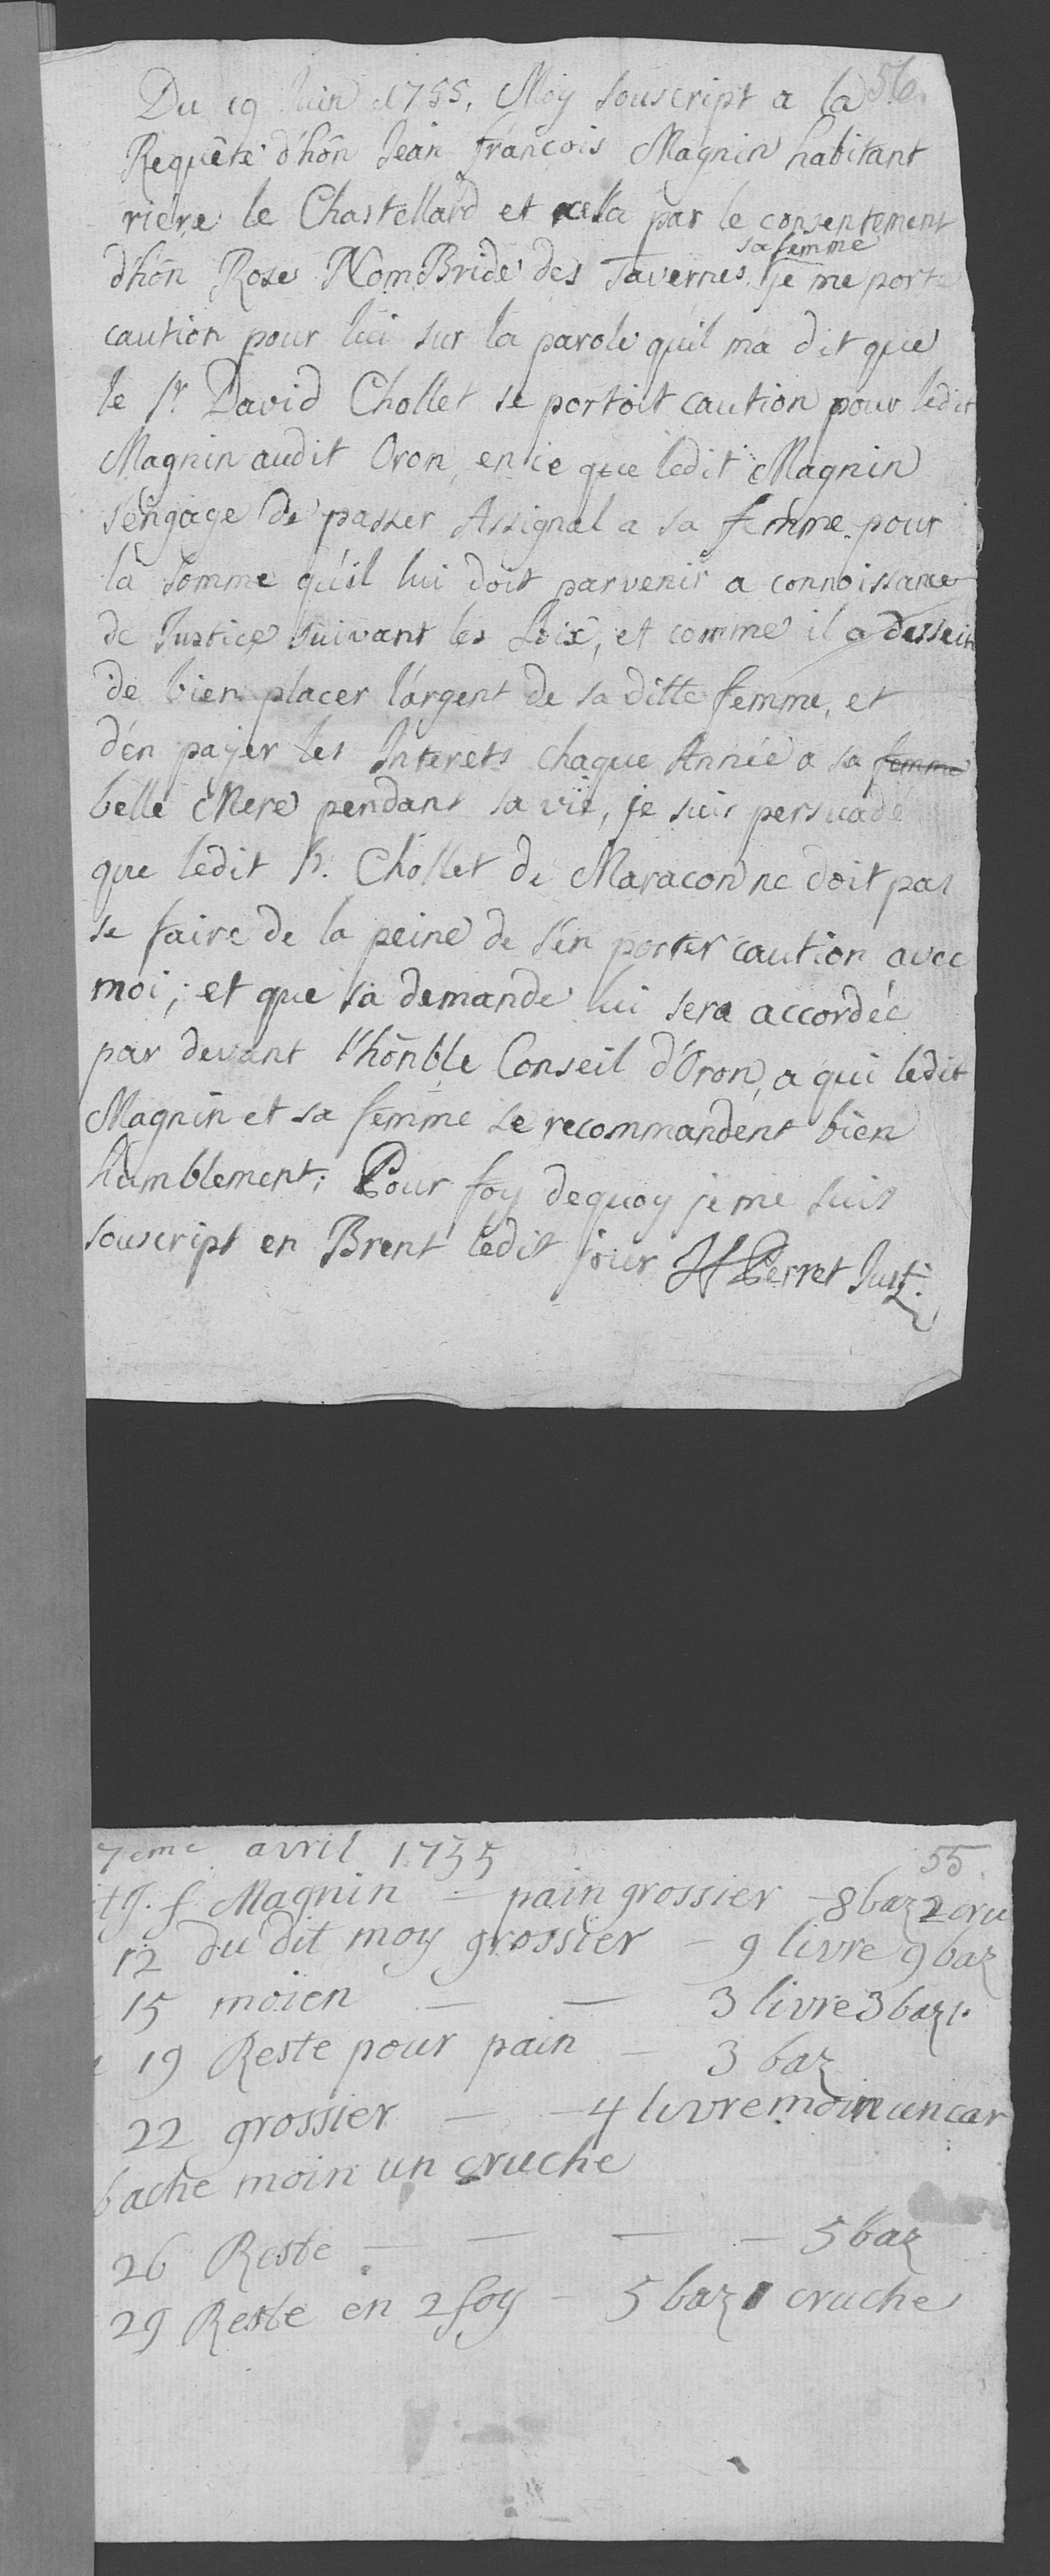 56.
Du 19 Juin 1755. Moy souscript a la
Requête d'hôn Jean françois Magnin habitant
riere le Chastellard et cella par le consentement
sa femme
d'hôn Rose NomBride des Tavernes, je me porte
caution pour lui sur la parole qu'il m'a dit que
le Sr. David Chollet se portoit caution pour ledit
Magnin audit Oron, en ce que ledit Magnin
s'engage de passer Assignal a sa femme pour
la Somme qu'il lui doit parvenir a connoissance
de Justice suivant les Loix, et comme il a dessein
de bien placer l'argent de sa ditte femme, et
d'en payer les Interets chaque Année a sa femme
belle Mere pendant sa vie, je suis persuadé
que ledit Sr. Chollet de Maracon ne doit pas
se faire de la peine de s'en porter caution avec
moi; et que sa demande lui sera accordée
par devant l'hônble Conseil d'Oron, a qui ledit
Magnin et sa femme se recommandent bien
humblement; Pour foy dequoy je me suis
souscript en Brent ledit jour H Perret Just:
7eme avril 1755
55
J. f Magnin - pain grossier - 8 baz 2 cru
12 du dit moy grossier - 9 livre 9 baz
15 moien - - 3 livre 3 baz 1.
19 Reste pour pain - 3 baz
22 grossier - - 4 livre moin un car
bache moin un cruche
26 Reste - - - - 5 baz
29 Reste en 2 foy - 5 baz 1 cruche